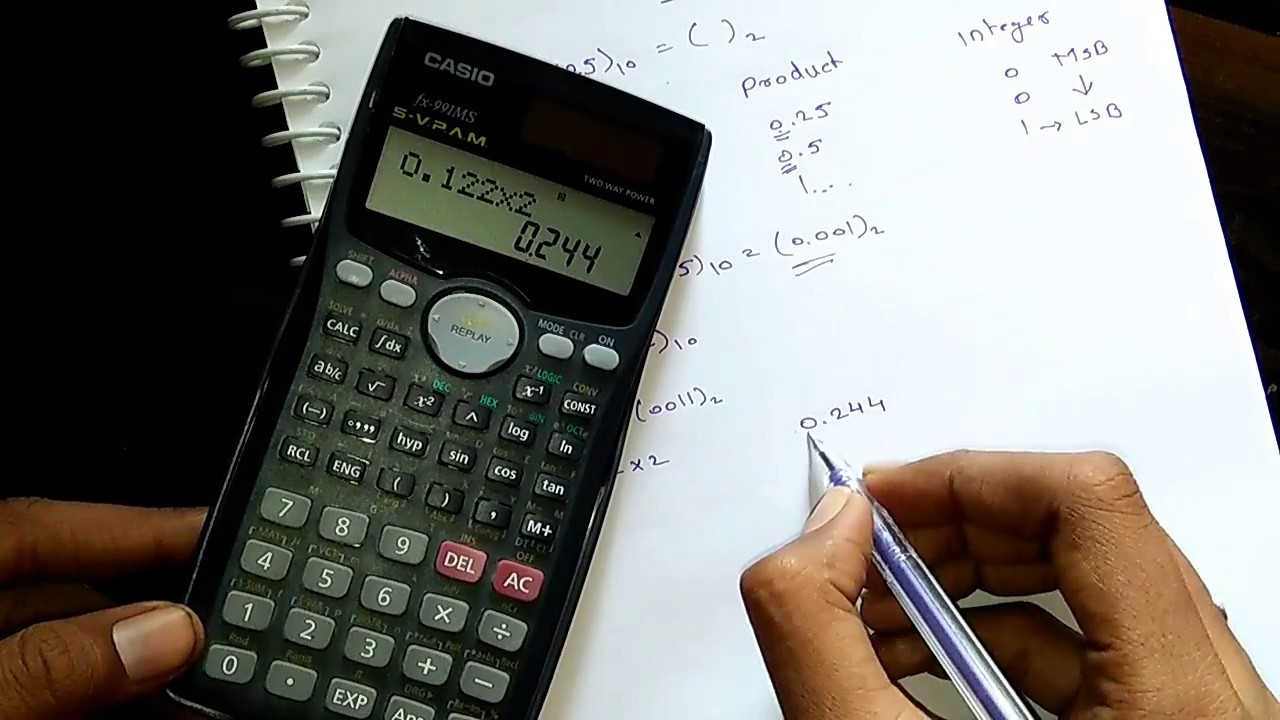 .5)10 = ( )2
product
Integer
0.25
0 MSB
0.5
0 ↓
1....
1 → LSB
5)10 = (0.001)2
)10
(0011)2
0.244
x2
CASIO
fx-991MS
S-V.P.A.M.
TWO WAY POWER
0.122x2
0.244
SHIFT ALPHA REPLAY MODE CLR ON
SOLVE d/dx x! LOGIC CONV
CALC ∫dx x⁻¹ CONST
DEC HEX BIN OCT
ab/c √ x² ^ log ln
(–) °'" hyp sin cos tan
STO
RCL ENG ( ) , M+
INS OFF
7 8 9 DEL AC
4 5 6 × ÷
1 2 3 + −
Rnd Ran# π DRG▸
0 . EXP Ans